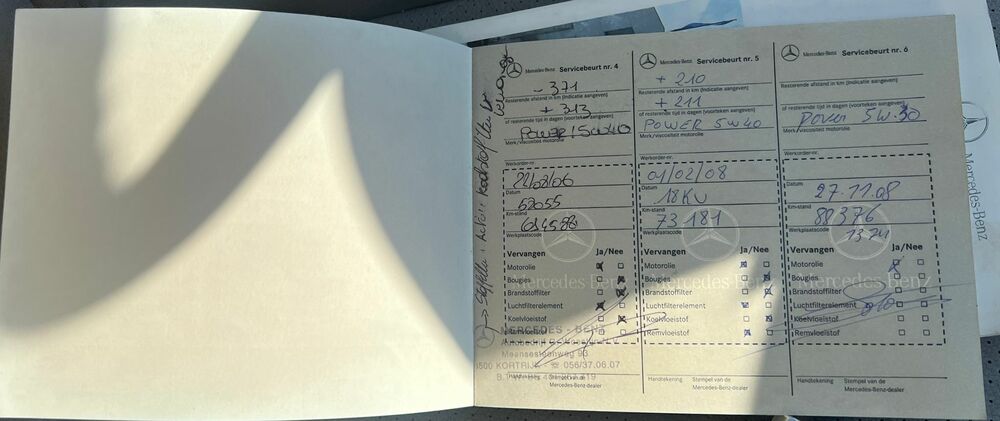 Mercedes-Benz Servicebeurt nr. 4
- 371
Resterende afstand in km (indicatie aangeven)
+ 313
of resterende tijd in dagen (voorteken aangeven)
POWER 5W40
Merk/viscositeit motorolie
Werkorder-nr.
22/08/06
Datum
52055
Km-stand
Werkplaatscode
Vervangen Ja/Nee
Motorolie
Bougies
Brandstoffilter
Luchtfilterelement
Koelvloeistof
Remvloeistof
MERCEDES - BENZ
Autobedrijf
Meensesteenweg 93
8500 KORTRIJK - ☎ 056/37.06.07
Handtekening Stempel van de
Mercedes-Benz-dealer
Mercedes-Benz Servicebeurt nr. 5
+ 210
Resterende afstand in km (indicatie aangeven)
+ 211
of resterende tijd in dagen (voorteken aangeven)
POWER 5W40
Merk/viscositeit motorolie
Werkorder-nr.
01/02/08
Datum
Km-stand
73181
Werkplaatscode
Vervangen Ja/Nee
Motorolie
Bougies
Brandstoffilter
Luchtfilterelement
Koelvloeistof
Remvloeistof
Handtekening Stempel van de
Mercedes-Benz-dealer
Mercedes-Benz Servicebeurt nr. 6
Resterende afstand in km (indicatie aangeven)
of resterende tijd in dagen (voorteken aangeven)
Power 5W.30
Merk/viscositeit motorolie
Werkorder-nr.
27.11.08
Datum
88376
Km-stand
Werkplaatscode
Vervangen Ja/Nee
Motorolie
Bougies
Brandstoffilter
Luchtfilterelement
Koelvloeistof
Remvloeistof
Handtekening Stempel van de
Mercedes-Benz-dealer
Mercedes-Benz